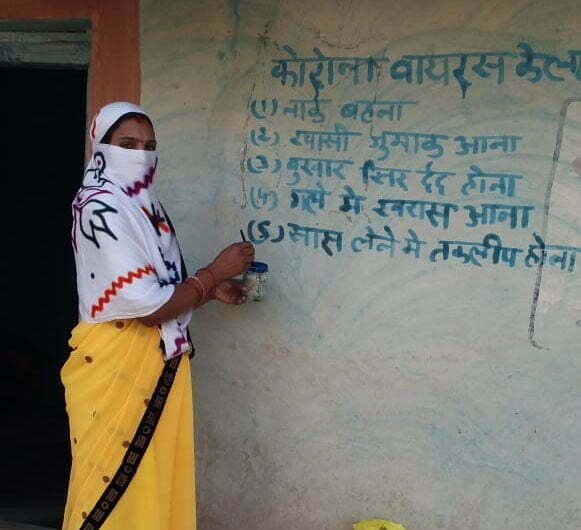 कोरोना वायरस के ल
(1) नाक बहना
(2) खासी जुमाक आना
(3) वुसार सिर र्दद होना
(4) गले मे खरास आना
(5) सास लेने मे तकलीप होना